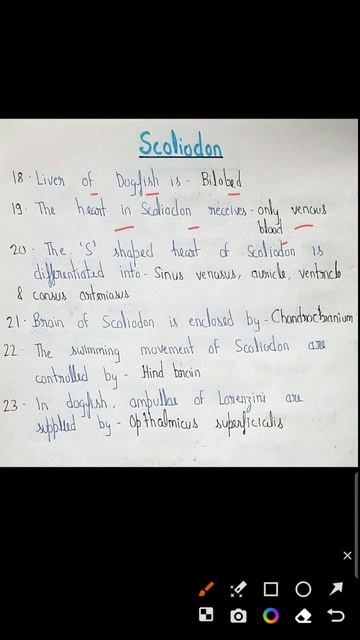 Scoliodon
18. Liver of Dogfish is - Bilobed
19. The heart in Scoliodon receives - only venous
blood
20. The 'S' shaped heart of Scoliodon is
differentiated into - Sinus venusus, auricle, ventricle
& conus arteriosus
21. Brain of Scoliodon is enclosed by - Chondrocranium
22. The swimming movement of Scoliodon are
controlled by - Hind brain
23. In dogfish, ampullae of Lorenzini are
supplied by - Opthalmicus superficialis